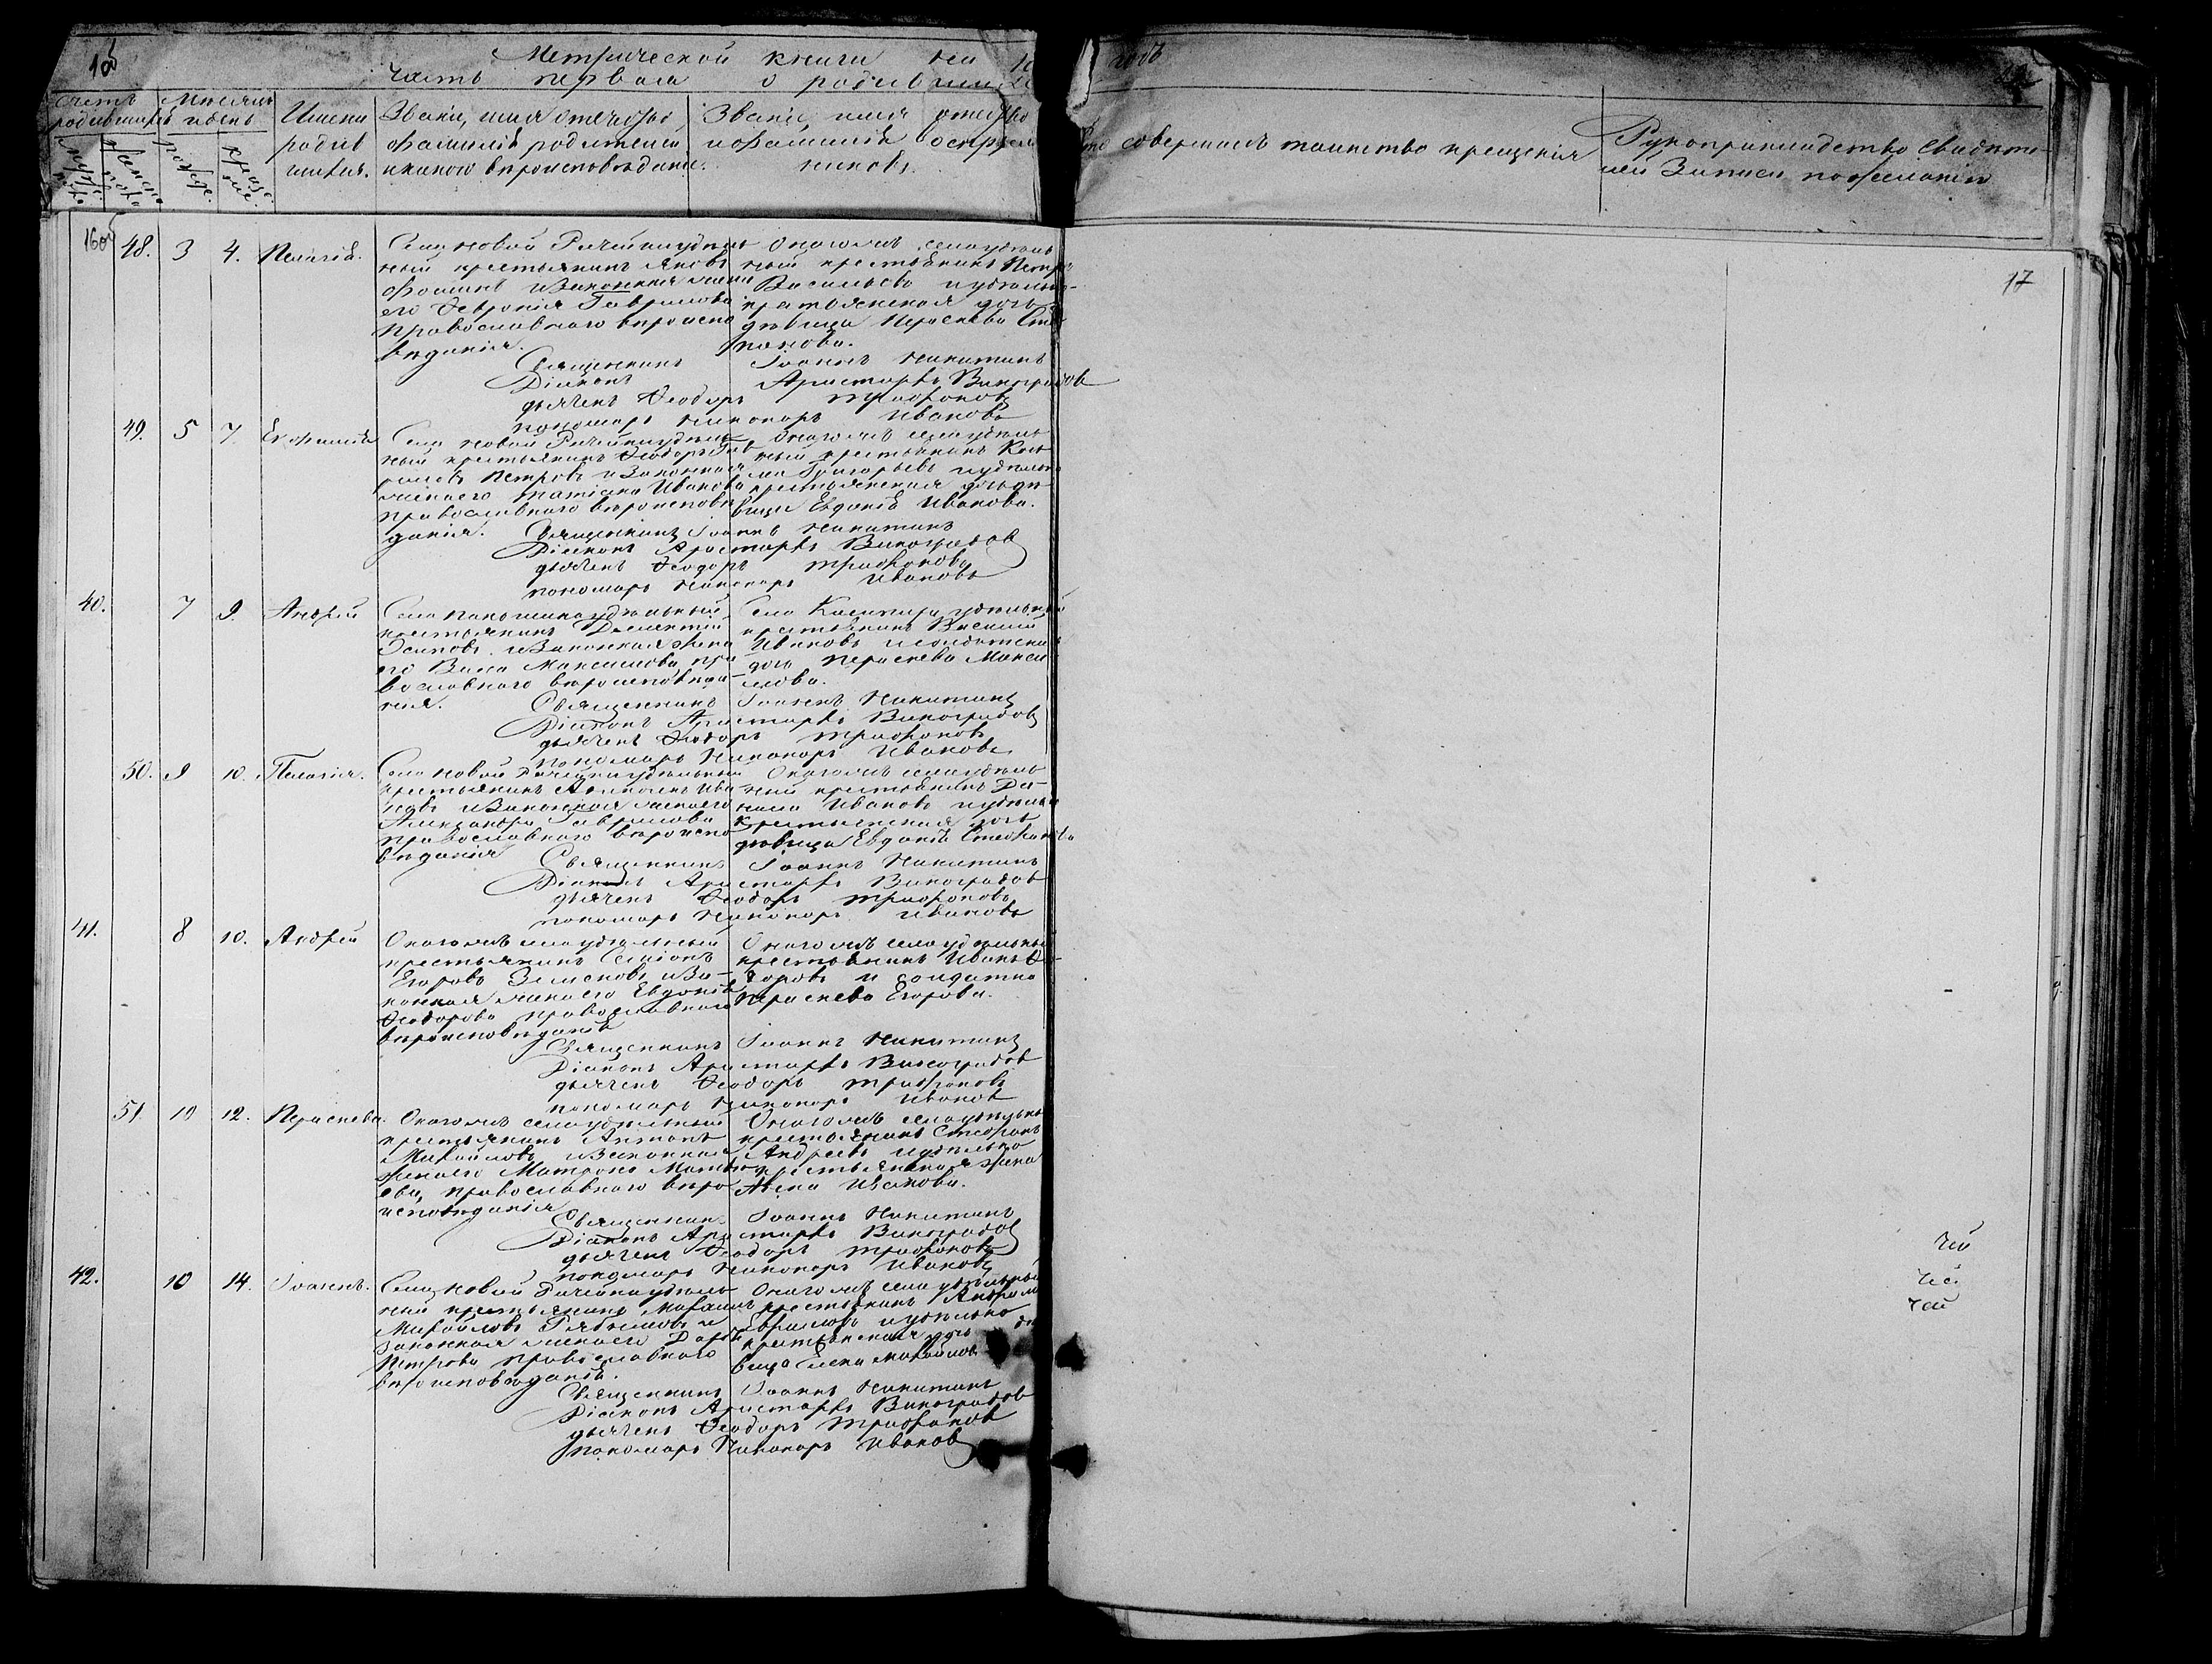 Метрической книги на
часть первая о родивши
годъ
Счетъ родившихъ
Мѣсяцъ и день
Имена родив шихъ.
Званіе, имя отечество, фамилія родителей и какого вѣроисповѣданія.
Званіе, имя отечество и фамилія воспріем никовъ.
совершалъ таинство крещенія
Рукоприкладство свидѣте-
лей записи по желанію
17
160б
48. 3 4. Пелагія.
Села Новой Рачейки удѣль
ный крестьянинъ Яковъ
Фоминъ и законная жена
его Ѳевронія Гаврилова
православнаго вѣроиспо
вѣданія.
Онаго жъ села удѣль
ный крестьянинъ Петръ
Васильевъ и удѣльно-
крестьянская дочь
дѣвица Параскева Сте
панова.
Священникъ Іоаннъ Никитинъ
Діаконъ Аристархъ Виноградовъ
дьячекъ Ѳеодоръ Трифоновъ
пономарь Никаноръ Ивановъ
49. 5 7. Евфимія
Села Новой Рачейки удѣль
ный крестьянинъ Ѳеодоръ Гав
риловъ Петровъ и законная
жена его Татіана Иванова
православнаго вѣроисповѣ
данія.
Онаго жъ села удѣль
ный крестьянинъ Кось
ма Григорьевъ и удѣльно
крестьянская дочь дѣ
вица Евдокія Иванова.
Священникъ Іоаннъ Никитинъ
Діаконъ Аристархъ Виноградовъ
дьячекъ Ѳеодоръ Трифоновъ
пономарь Никаноръ Ивановъ
40. 7 9. Андрей
Села удѣльный
крестьянинъ Дементій
Осиповъ и законная жена
его Васса Максимова пра
вославнаго вѣроисповѣда-
нія.
Села удѣльный
крестьянинъ Василій
Ивановъ и солдатская
дочь Параскева Макси
мова.
Священникъ Іоаннъ Никитинъ
Діаконъ Аристархъ Виноградовъ
дьячекъ Ѳеодоръ Трифоновъ
пономарь Никаноръ Ивановъ
50. 9 10. Пелагія.
Села Новой Рачейки удѣльный
крестьянинъ Ива
новъ и законная жена его
Александра Гаврилова
православнаго вѣроиспо
вѣданія
Онаго жъ села удѣль
ный крестьянинъ Да-
нила Ивановъ и удѣльно
крестьянская дочь
дѣвица Евдокія Стефанова
Священникъ Іоаннъ Никитинъ
Діаконъ Аристархъ Виноградовъ
дьячекъ Ѳеодоръ Трифоновъ
пономарь Никаноръ Ивановъ
41. 8 10. Андрей
Онаго жъ села удѣльный
крестьянинъ Симіонъ
Егоровъ и за-
конная жена его Евдокія
Ѳеодорова православнаго
вѣроисповѣданія
Онаго жъ села удѣльный
крестьянинъ Иванъ Ѳе-
доровъ и солдатка
Параскева Егорова.
Священникъ Іоаннъ Никитинъ
Діаконъ Аристархъ Виноградовъ
дьячекъ Ѳеодоръ Трифоновъ
пономарь Никаноръ Ивановъ
51. 10 12. Параскева.
Онаго жъ села удѣльный
крестьянинъ Антонъ
Михайловъ и законная
жена его Матрона Матѳѣ
ева, православнаго вѣро
исповѣданія
Онаго жъ села удѣльный
крестьянинъ Стефанъ
Андреевъ и удѣльно
крестьянская жена
Анна Иванова.
Священникъ Іоаннъ Никитинъ
Діаконъ Аристархъ Виноградовъ
дьячекъ Ѳеодоръ Трифоновъ
пономарь Никаноръ Ивановъ
42. 10 14. Іоаннъ.
Села Новой Рачейки удѣль
ный крестьянинъ Михаилъ
Михайловъ и
законная жена его Дарья
Петрова православнаго
вѣроисповѣданія.
Онаго жъ села удѣльный
крестьянинъ
Ефимовъ и удѣльно
крестьянская дочь дѣ
вица Елена Михайлова
Священникъ Іоаннъ Никитинъ
Діаконъ Аристархъ Виноградовъ
дьячекъ Ѳеодоръ Трифоновъ
пономарь Никаноръ Ивановъ
чей
чей
чей